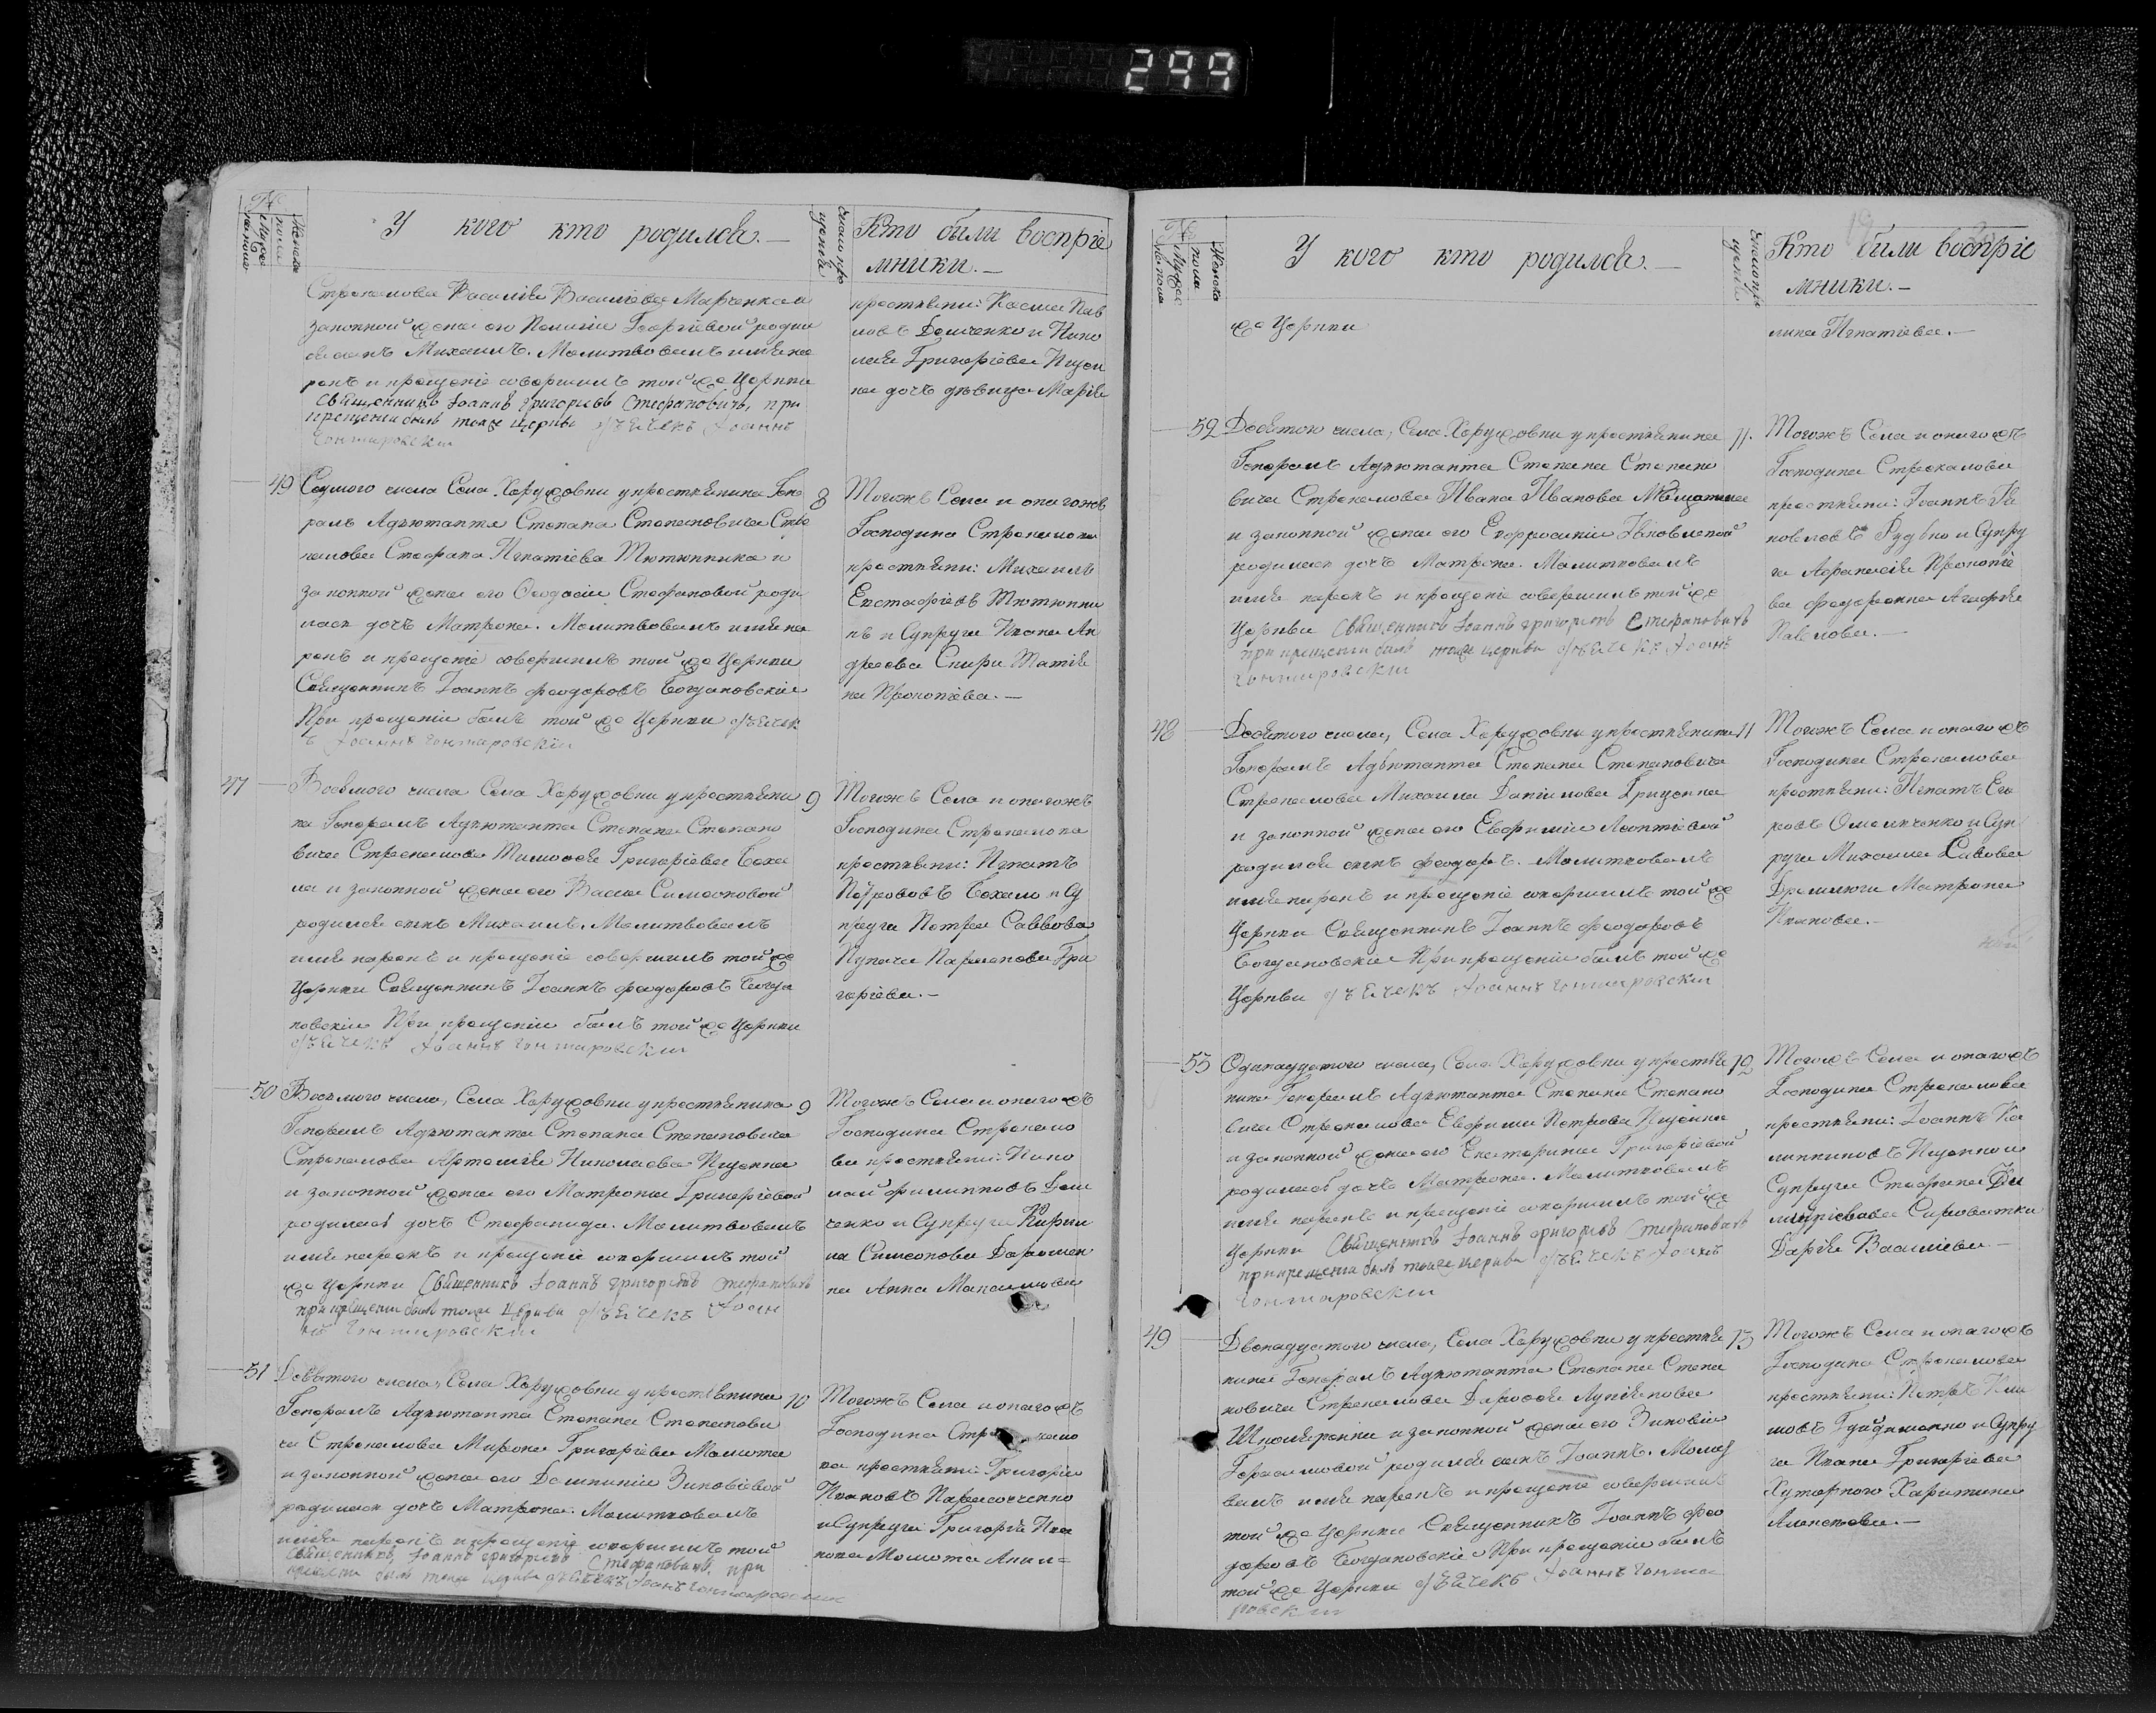 299
№
Мужеска пола
Женска
У кого кто родился.—
Число кре
щенія
Кто были воспріе
мники.—
Стрекалова Василія Василіева Марченка и
законной жены его Пелагіи Георгіевой роди
лся сынъ Михаилъ. Молитвовалъ имя на
рекъ и крещеніе совершилъ той же Церкви
Священникъ Іоаннъ Григорьевъ Стефановичъ, при
крещеніи былъ тояже церкви дьячекъ Іоаннъ
Гонтаровскій
крестьяни: Косма Пав
ловъ Демченко и Нико
лая Григоріева Пизен
ка дочь дѣвица Марія
49 Седмого числа Села Хоружовки у крестьянина Гене 8
ралъ Адъютанта Степана Степановича Стре
калова Стефана Игнатіева Тютюнника и
законной жены его Феодосіи Стефановой роди
лась дочь Матрона. Молитвовалъ имя на
рекъ и крещеніе совершилъ той же Церкви
Священникъ Іоаннъ Феодоровъ Богдановскій
При крещеніи былъ той же Церкви дьячек
ъ Іоаннъ Гонтаровскій
Тогожъ Села и онагожъ
Господина Стрекалова
крестьяни: Михаилъ
Евстафіевъ Тютюнни
къ и Супруга Ивана Ан
дреева Матія
на Прокопіева.—
47 Восьмого числа Села Хоружовки у крестьяни 9
на Генералъ Адъютанта Степана Степано
вича Стрекалова Тимофея Григоріева Бока
ла и законной жены его Вассы Симеоновой
родился сынъ Михаилъ. Молитвовалъ
имя нарекъ и крещеніе совершилъ той же
Церкви Священникъ Іоаннъ Феодоровъ Богда
новскій При крещеніи былъ той же Церкви
дьячекъ Іоаннъ Гонтаровскій
Тогожъ Села и онагожъ
Господина Стрекалова
крестьяни: Игнатъ
Петрововъ Бокало и Су
пруга Петра Саввова
Пугача Гри
горіева.—
50 Восьмого числа, Села Хоружовки у крестьянина 9
Генералъ Адъютанта Степана Степановича
Стрекалова Артемія Николаева Пизенка
и законной жены его Матроны Григоріевой
родилась дочь Стефанида. Молитвовалъ
имя нарекъ и крещеніе совершилъ той
же Церкви Священникъ Іоаннъ Григорьевъ Стефановичъ
при крещеніи былъ тояже Церкви дьячекъ Іоан
нъ Гонтаровскій
Тогожъ Села и онагожъ
Господина Стрекало
ва крестьяни: Нико
лай Филипповъ Дем
ченко и Супруга Кирил
ла Симеонова Дорошен
ка Анна Манаилова
51 Девятого числа, Села Хоружовки у крестьянина 10
Генералъ Адъютанта Степана Степанови
ча Стрекалова Мирона Григоріева Молота
и законной жены его Домникіи Зиновіевой
родилась дочь Матрона. Молитвовалъ
имя нарекъ и крещеніе совершилъ той
Священникъ Іоаннъ Григорьевъ Стефановичъ, при
крещеніи былъ тояже церкви дьячекъ Іоаннъ Гонтаровскій
Тогожъ Села и онагожъ
Господина Стрекало
ва крестьяни: Григорій
Ивановъ
и Супруга Григорія Ива
нова Молота Аким=
№
Мужеска пола
Женска
У кого кто родился.—
Число кре
щенія
Кто были воспріе
мники.—
же Церкви
лина Игнатіева.—
52 Девятого числа, Села Хоружовки у крестьянина 11.
Генералъ Адъютанта Степана Степано
вича Стрекалова Ивана Иванова
и законной жены его Евфросиніи Яковлевой
родилась дочь Матрона. Молитвовалъ
имя нарекъ и крещеніе совершилъ той же
Церкви Священникъ Іоаннъ Григорьевъ Стефановичъ
при крещеніи былъ тояже церкви дьячекъ Іоаннъ
Гонтаровскій
Тогожъ Села и онагожъ
Господина Стрекалова
крестьяни: Іоаннъ Яко
влевъ Рудько и Супру
га Афанасія Прокопіе
ва Федоренка Агафія
Павлова.—
48 Девятого числа, Села Хоружовки у крестьянина 11
Генералъ Адъютанта Степана Степановича
Стрекалова Михаила Даніилова Гриценка
и законной жены его Евфиміи Леонтіевой
родился сынъ Феодоръ. Молитвовалъ
имя нарекъ и крещеніе совершилъ той же
Церкви Священникъ Іоаннъ Феодоровъ
Богдановскій При крещеніи былъ той же
Церкви дьячекъ Іоаннъ Гонтаровскій
Тогожъ Села и онагожъ
Господина Стрекалова
крестьяни: Игнатъ Его
ровъ Омельченко и Суп
руга Михаила Савова
Дремлюги Матрона
Иванова.—
53 Одинадцатого числа, Села Хоружовки у крестья 12
нина Генералъ Адъютанта Степана Степано
вича Стрекалова Евфима Петрова Пизенка
и законной жены его Екатерины Григоріевой
родилась дочь Матрона. Молитвовалъ
имя нарекъ и крещеніе совершилъ той же
Церкви Священникъ Іоаннъ Григорьевъ Стефановичъ
при крещеніи былъ тояже церкви дьячекъ Іоаннъ
Гонтаровскій
Тогожъ Села и онагожъ
Господина Стрекалова
крестьяни: Іоаннъ Ка
линниковъ Пизенко и
Супруга Стефана Ди
митріевова Сироватки
Дарія Василіева.—
49 Двенадцатого числа, Села Хоружовки у крестья 13
нина Генералъ Адъютанта Степана Степа
новича Стрекалова Дорофея Лукіянова
и законной жены его Зиновіи
Герасимовой родился сынъ Іоаннъ. Молит
валъ имя нарекъ и крещеніе совершилъ
той же Церкви Священникъ Іоаннъ Фео
доровъ Богдановскій При крещеніи былъ
той же Церкви дьячекъ Іоаннъ Гонта
ровскій
Тогожъ Села и онагожъ
Господина Стрекалова
крестьяни: Петръ Кли
мовъ Гайдаменко и Супру
га Ивана Григоріева
Хуторного Харитина
Алексеева.—